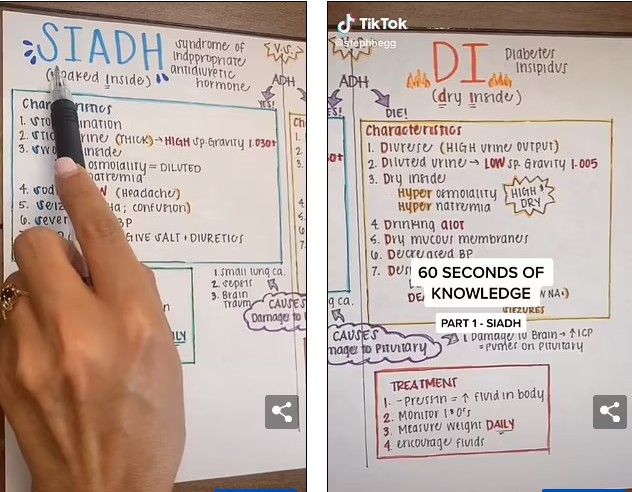 SIADH
syndrome of
inappropriate
antidiuretic
hormone
(soaked inside)
V.S.
ADH
YES!
Characteristics
1. STO nation
2. STIC urine (THICK) → HIGH sp. Gravity 1.030+
3. SWO inside
osmolality = DILUTED
natremia
4. SOD W (Headache)
5. Seiz a; confusion)
6. Sever BP
7. GIVE SALT + DIURETICS
DAILY
1. small lung ca.
2. sepsis
3. Brain
Traum
CAUSES
Damage to
TikTok
@stephbegg
DI
Diabetes
Insipidus
(dry inside)
ADH
DIE!
Characteristics
1. Diurese (HIGH urine OUTPUT)
2. Diluted urine → LOW sp. Gravity 1.005
3. Dry inside
Hyper osmolality
Hyper natremia
HIGH &
DRY
4. Drinking alot
5. Dry mucous membranes
6. Decreased BP
7. Des
DEA NA+)
SEIZURES
60 SECONDS OF
KNOWLEDGE
PART 1 - SIADH
g ca.
CAUSES
mage to Pituitary
1. Damage to Brain → ↑ ICP
= pushes on pituitary
TREATMENT
1. -pressin = ↑ fluid in body
2. Monitor I&O's
3. Measure weight DAILY
4. encourage fluids